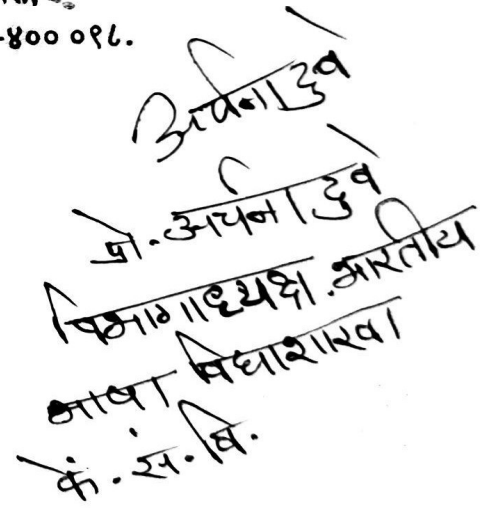 -४०० ०९८.
अर्चना दुबे
प्रो. अर्चना दुबे
विभागाध्यक्ष, भारतीय
भाषा विद्याशाखा
कें. सं. वि.